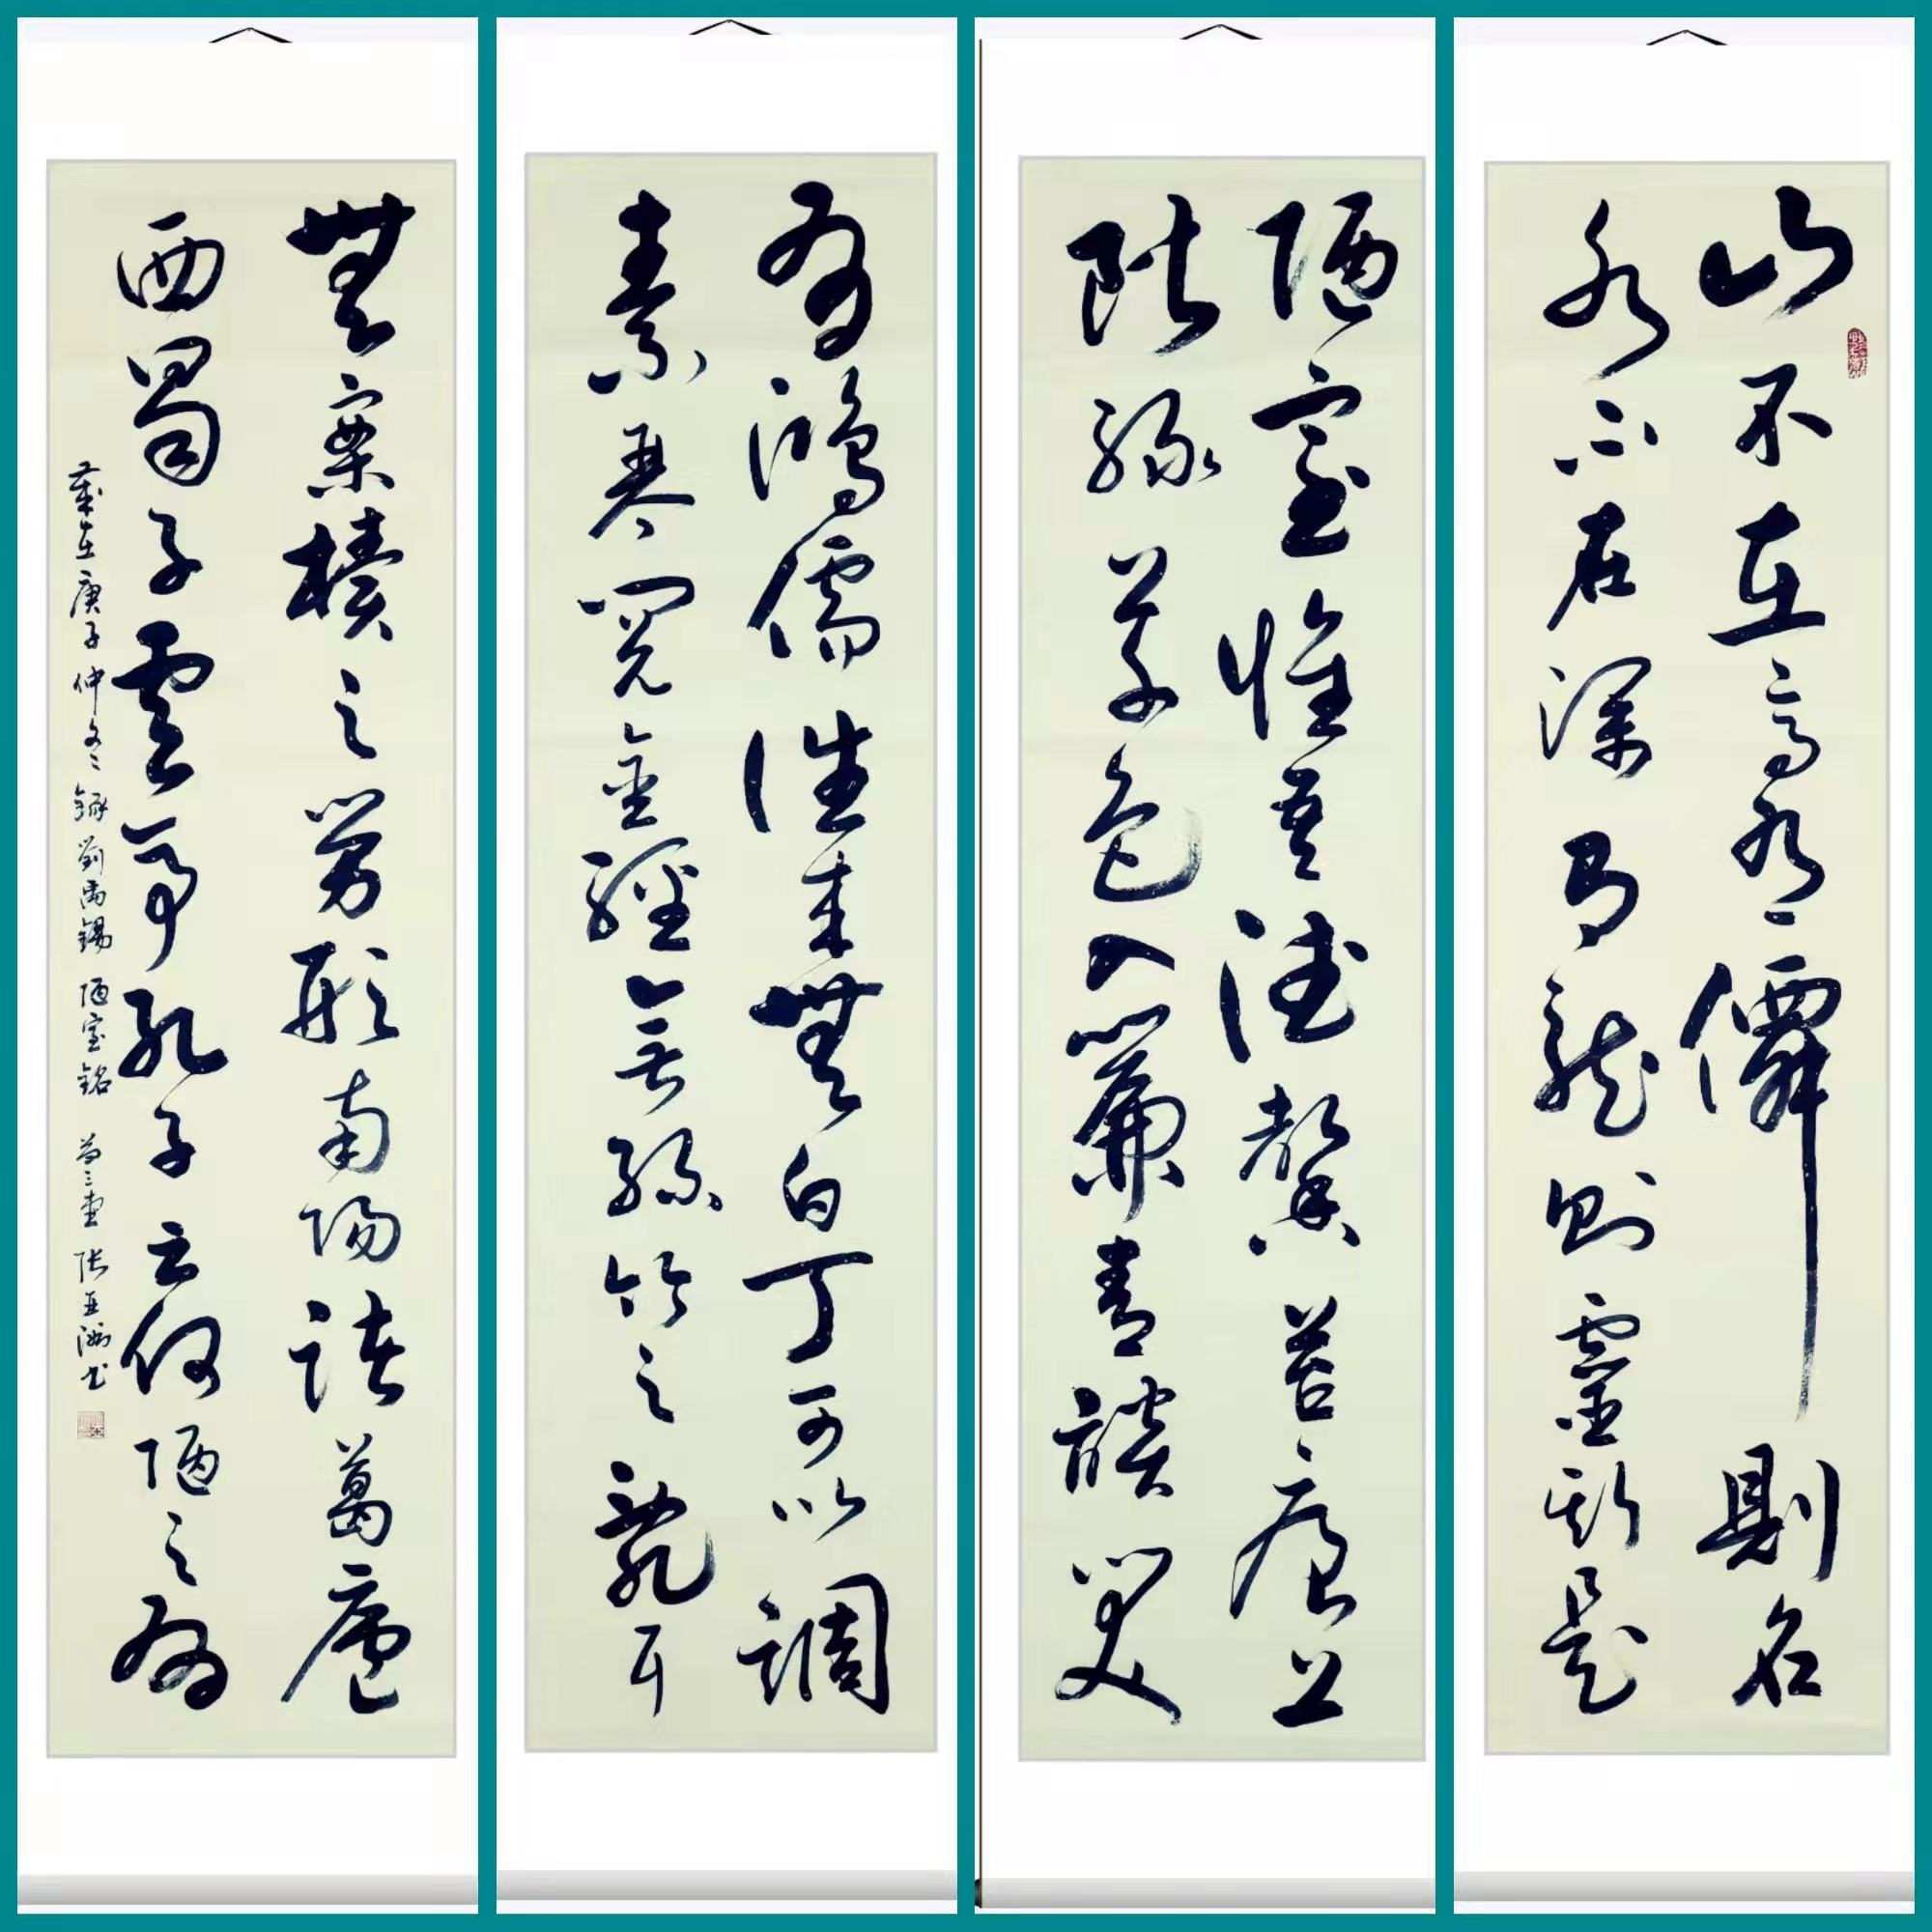 山不在高有僊則名
水不在深有龍則靈斯是
陋室惟吾德馨苔痕上
階緑草色入簾青談笑
有鴻儒往来無白丁可以調
素琴閲金經無絲竹之亂耳
無案牘之勞形南陽諸葛廬
西蜀子雲亭孔子云何陋之有
歲在庚子仲冬錄劉禹錫陋室銘 張亚洲书